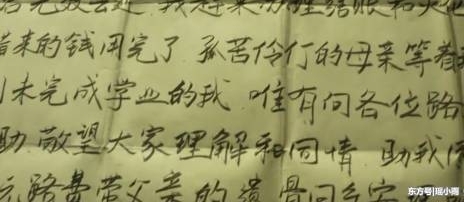 治无效去逝 我赶来办理结账和火化
借来的钱用完了 孤苦伶仃的母亲等着我
未完成学业的我 唯有向各位路
助 敬望大家理解和同情 助我们
元路费带父亲的遗骨回乡安
东方号|瑶小雨